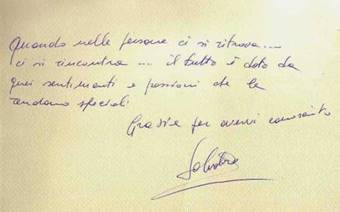 Quando nelle persone ci si ritrova....
ci si rincontra .... il tutto è dato da
quei sentimenti e passioni che le
rendono speciali
Grazie per avervi conosciuto